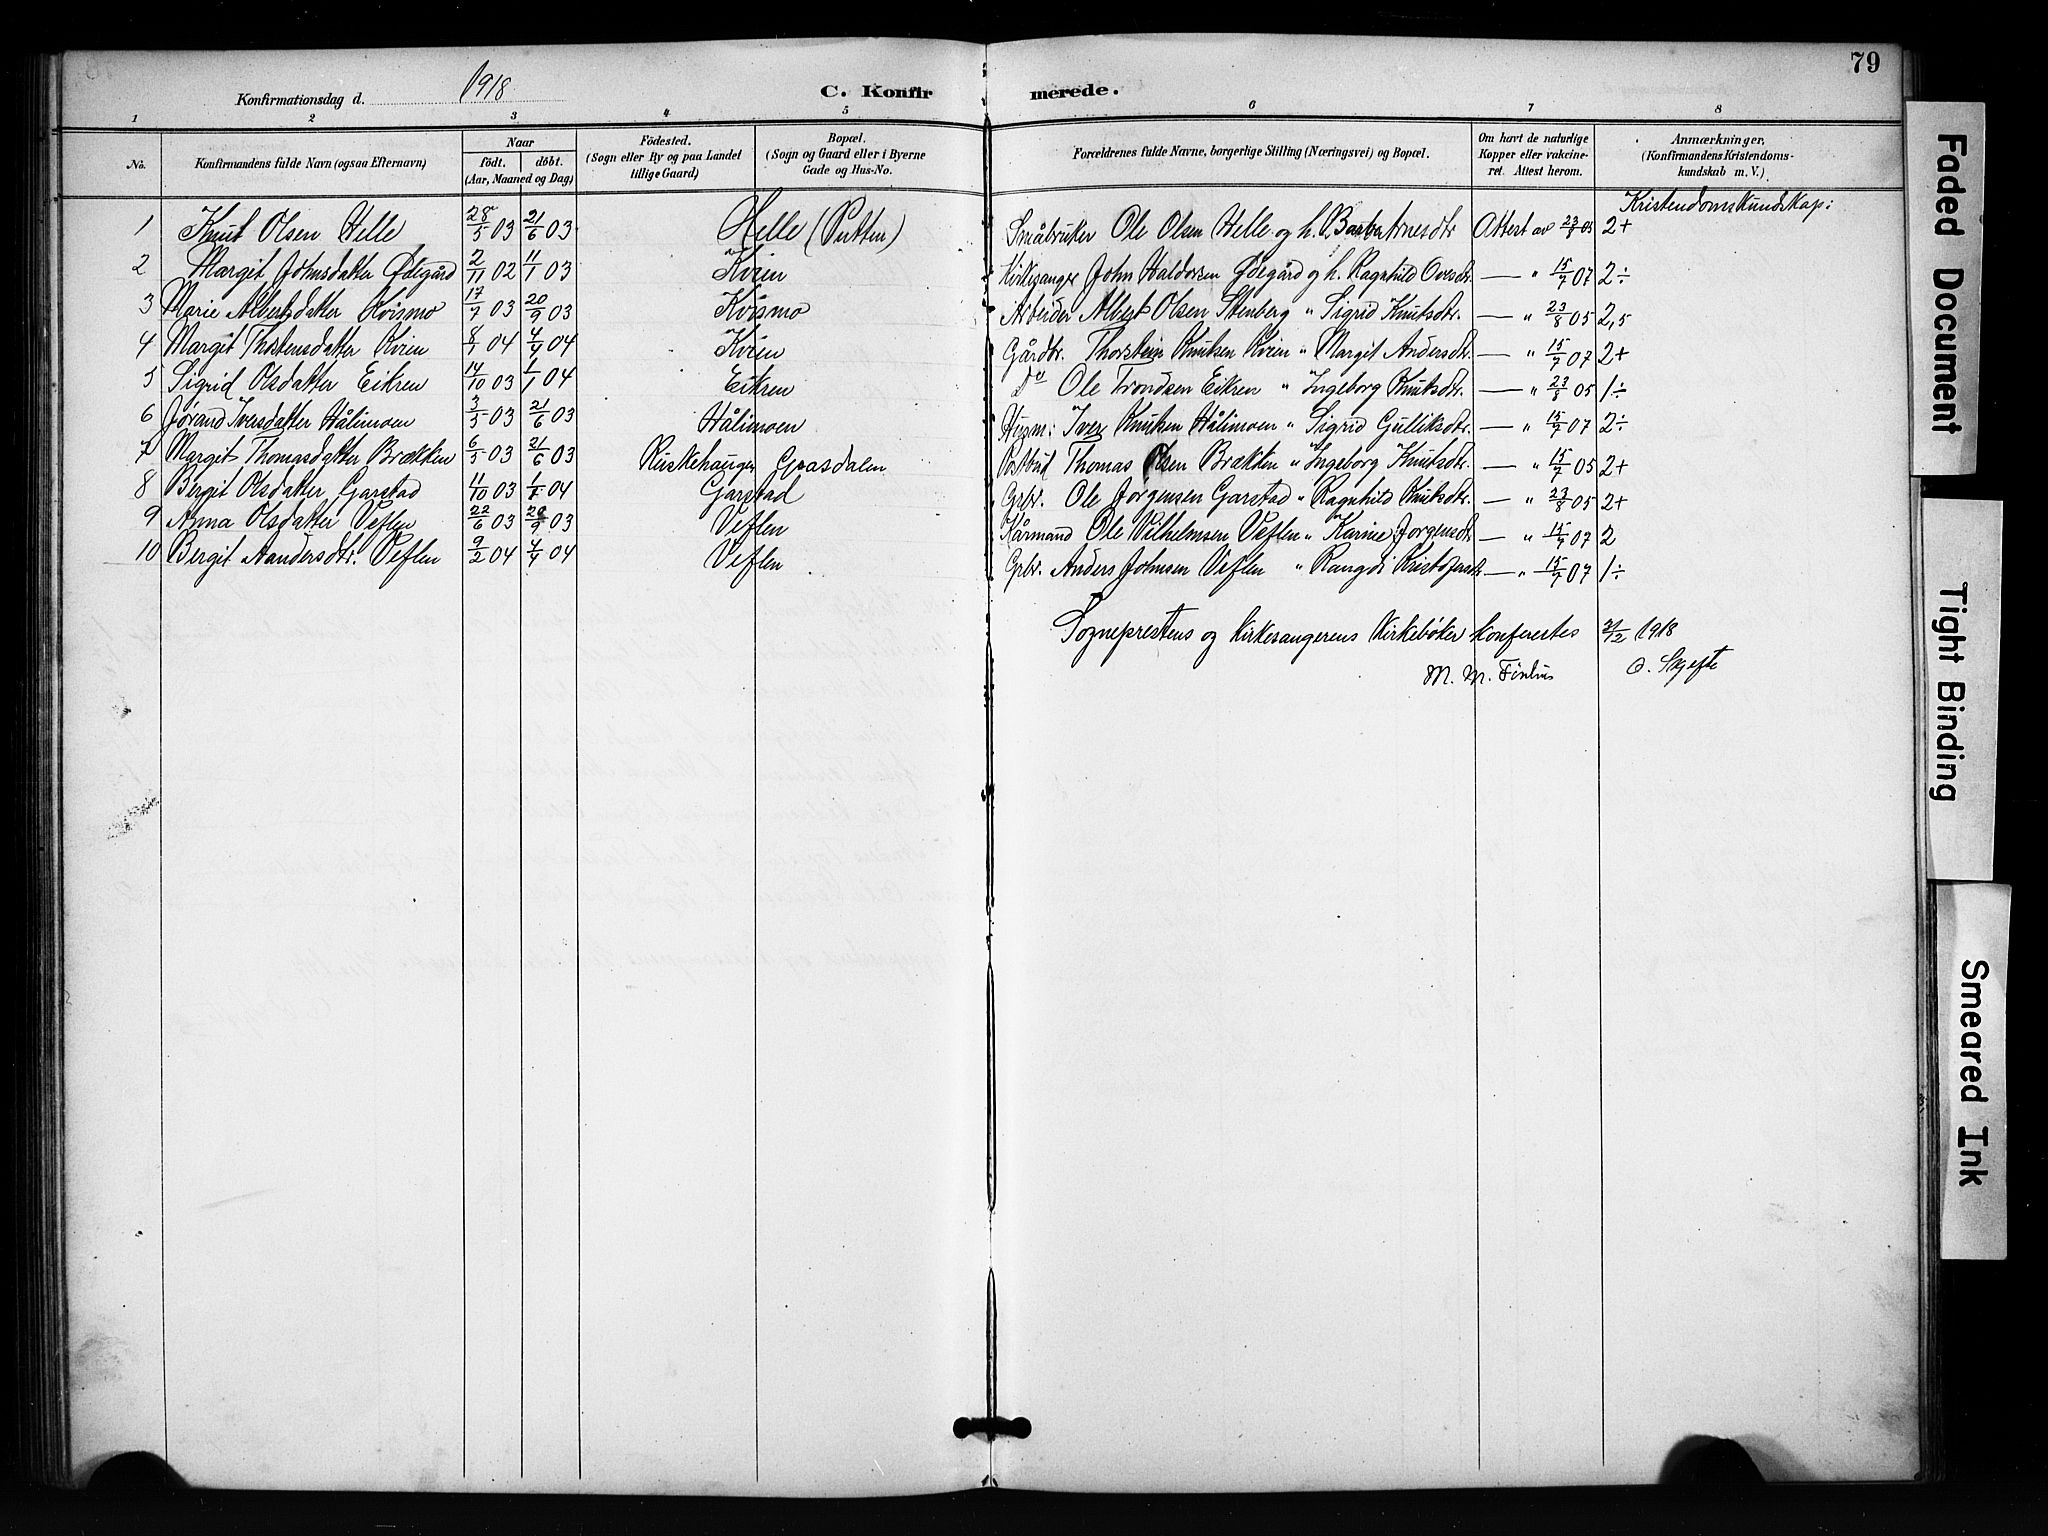 79
Konfirmationsdag d. 1918
C. Konfirmerede.
1 2 3 4 5 6 7 8
No. Konfirmandens fulde Navn (ogsaa Efternavn) Naar födt. döbt. (Aar, Maaned og Dag) Födested. (Sogn eller By og paa Landet tillige Gaard) Bopæl. (Sogn og Gaard eller i Byerne Gade og Hus-No. Forældrenes fulde Navne, borgerlige Stilling (Næringsvei) og Bopæl. Om havt de naturlige Kopper eller vakcineret. Attest herom. Anmærkninger, (Konfirmandens Kristendomskundskab m. V.)
Kristendomskundskap:
1 Knut Olsen Helle 28/5 03 21/6 03 Helle (Putten) Småbruker Ole Olsen Helle og h. Barba Arnesdtr Attest av 23/8 05 2+
2 Margit Johnsdatter Ødegård 2/11 02 11/1 03 Kvien Kirkesanger John Haldorsen Ødegård og h. Ragnhild Ovesdtr. — " 15/7 07 2÷
3 Marie Albertsdatter Kvismo 17/7 03 20/9 03 Kvismo Arbeider Albert Olsen Stenberg " Sigrid Knutsdtr. — " 23/8 05 2,5
4 Margit Thostensdatter Kvien 8/1 04 4/4 04 Kvien Gårdbr. Thorstein Knutsen Kvien " Margit Andersdtr. — " 15/7 07 2+
5 Sigrid Olsdatter Eikren 14/10 03 1/1 04 Eikren Do Ole Trondsen Eikren " Ingeborg Knutsdtr. — " 23/8 05 1÷
6 Jørand Iversdatter Hålimoen 3/5 03 21/6 03 Hålimoen Husm: Iver Knutsen Hålimoen " Sigrid Gulliksdtr. — " 15/7 07 2÷
7 Margit Thomasdatter Brækken 6/5 03 21/6 03 Ruskehaugen Gvasdalen Postbud Thomas Olsen Brækken " Ingeborg Knutsdtr. — " 15/7 05 2+
8 Bergit Olsdatter Garstad 11/10 03 1/1 04 Garstad Grbr. Ole Jørgensen Garstad " Ragnhild Knutsdtr. — " 23/8 05 2+
9 Anna Olsdatter Veflen 22/6 03 20/9 03 Veflen Kårmand Ole Vilhelmsen Veflen " Karine Jorgensdtr — " 15/7 07 2
10 Bergit Aandersdtr. Veflen 9/2 04 4/4 04 Veflen Grbr. Anders Johnsen Veflen " Rangdi Kristofersdtr — " 15/7 07 1÷
Sogneprestens og kirkesangerens Kirkebøker konferertes 21/2 1918
M. M. O.
Faded Document
Tight Binding
Smeared Ink